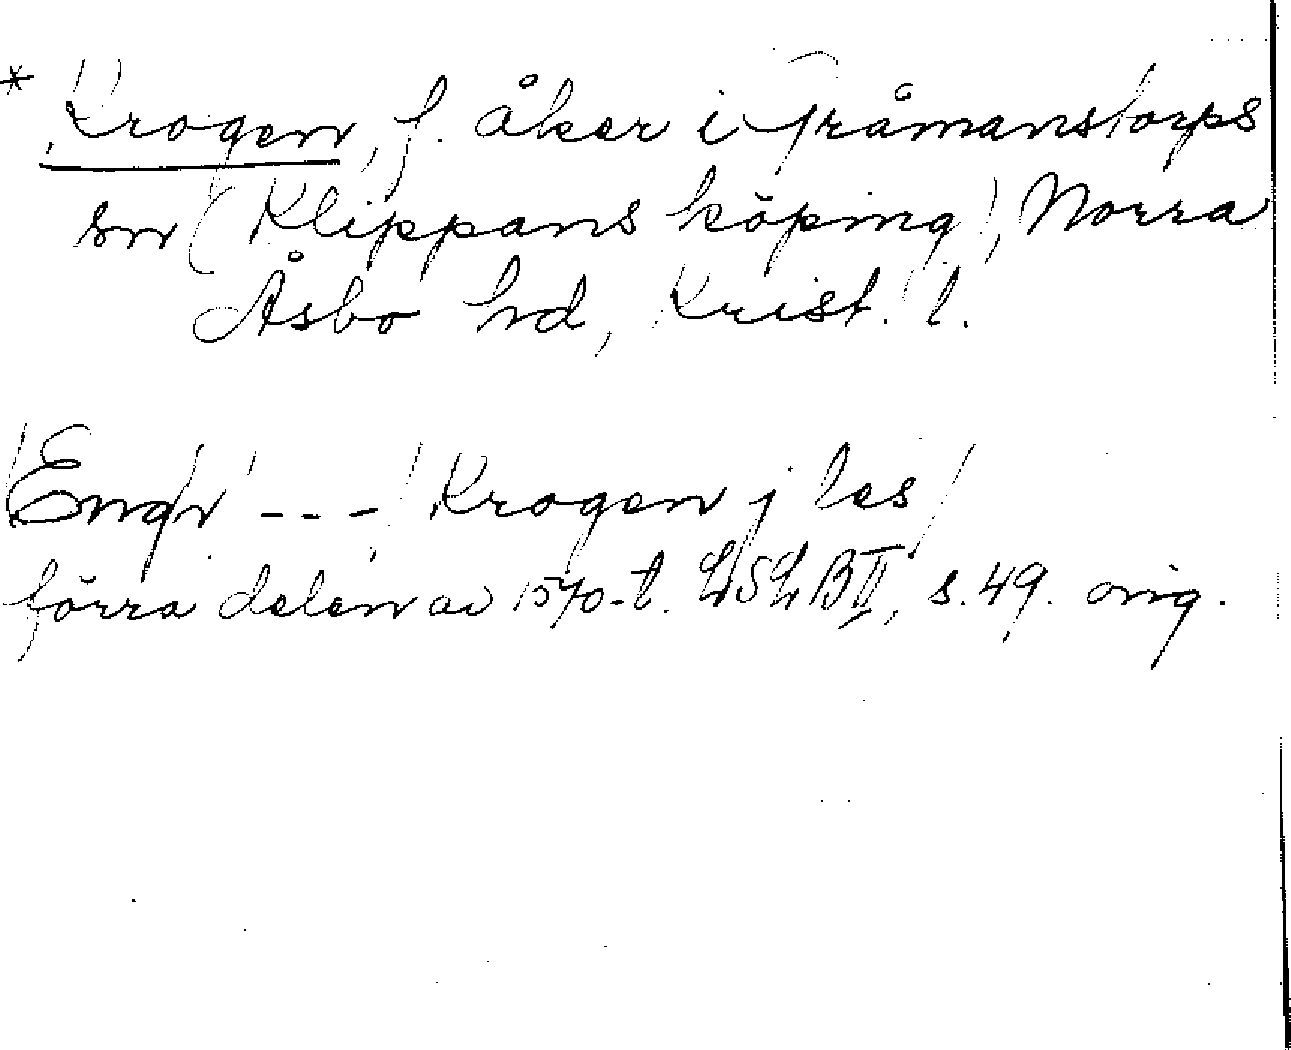 * Krogen, f. åker i Gråmanstorps
sn (Klippans köping), Norra
Åsbo hd, Krist. l.
/Engh/ --- / Krogen j les /
förra delen av 1570-t. LSLB II, s. 49. orig.